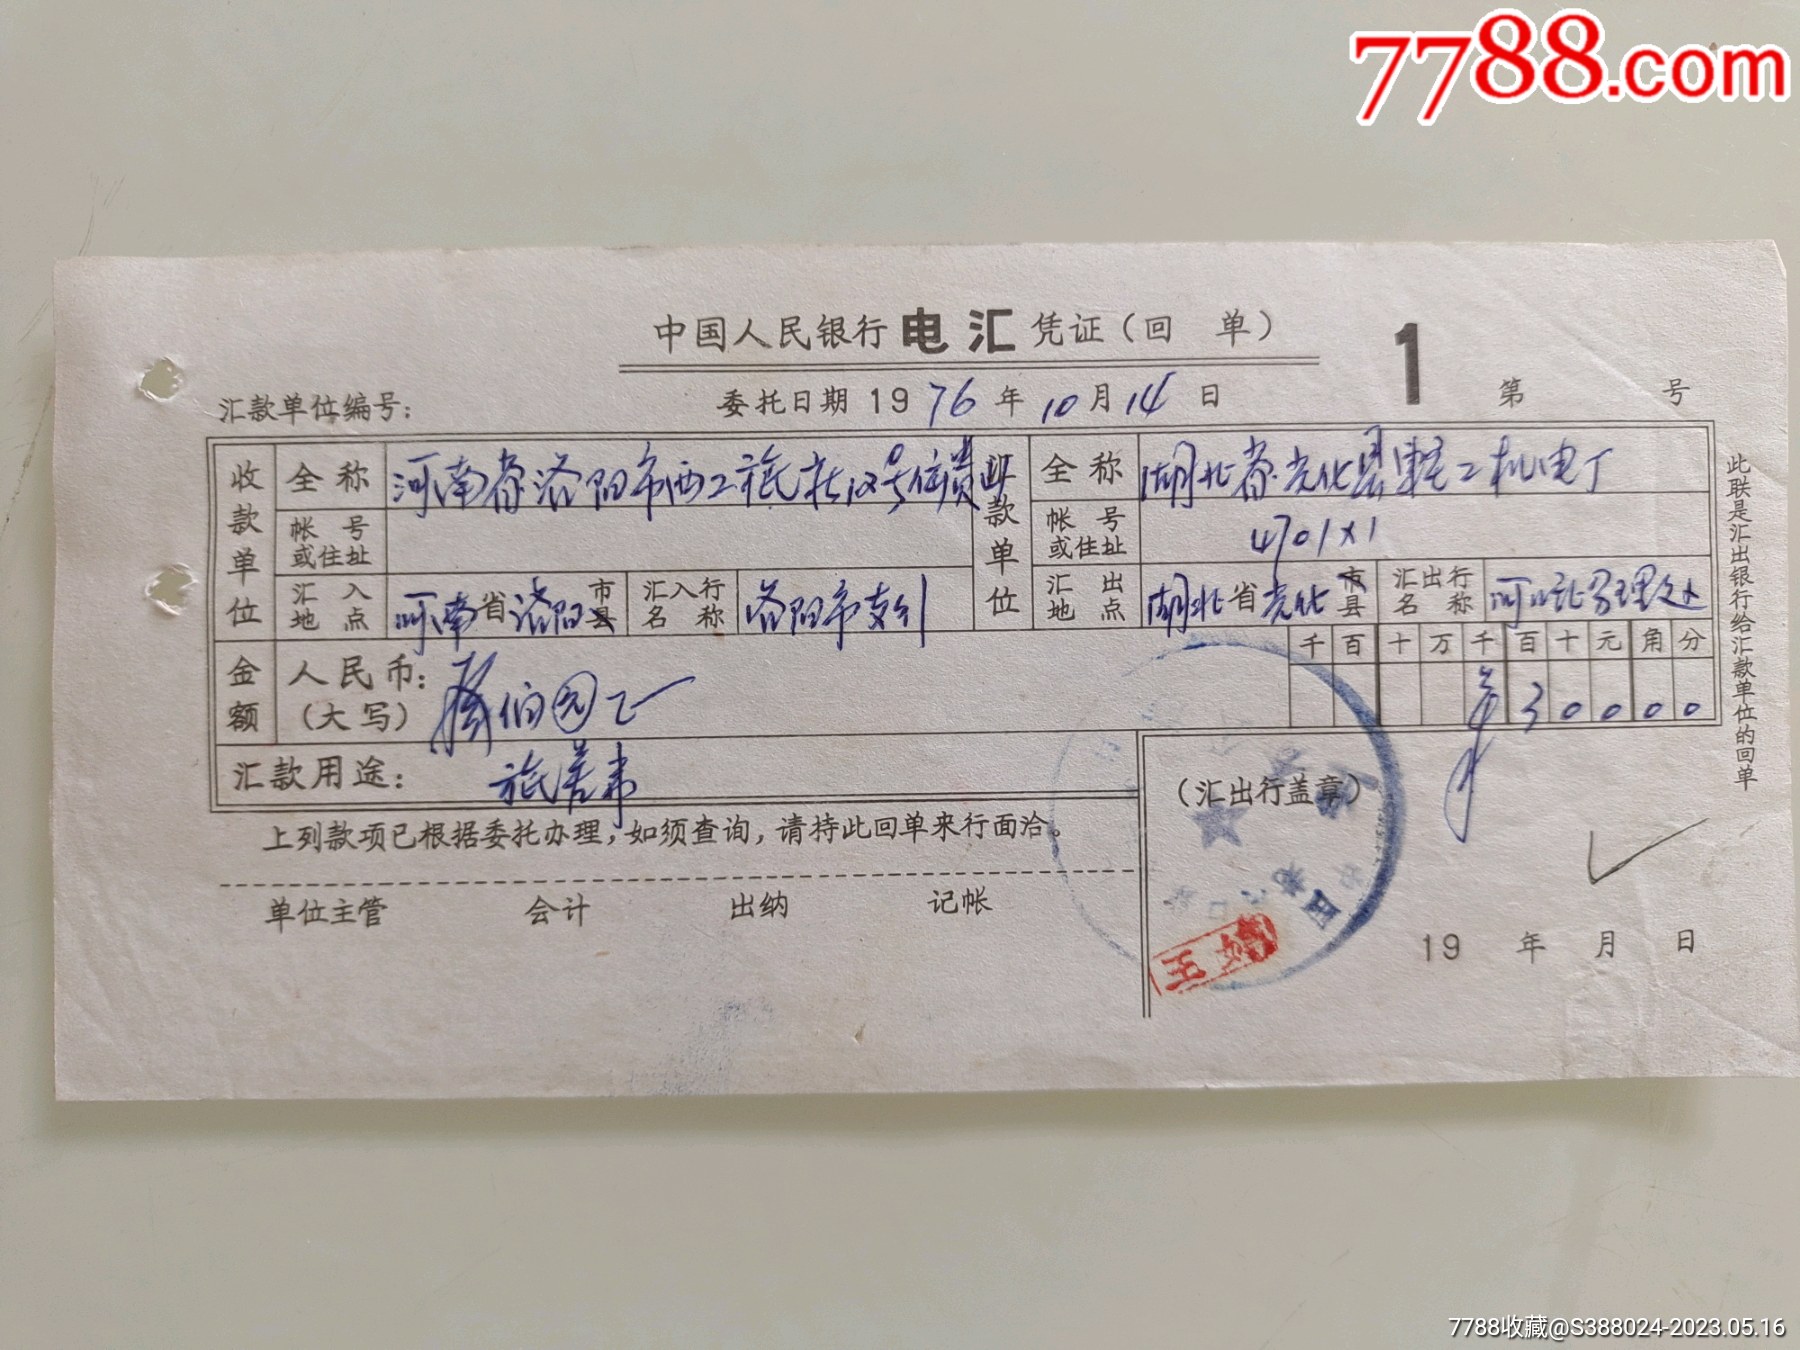 7788.com
中国人民银行 电汇 凭证(回 单)
1
汇款单位编号:
委托日期 1976 年 10 月 14 日
第 号
收款单位
全称
河南省洛阳市西工旅社
款单位
全称
湖北省光化县 二机电厂
帐号或住址
帐号或住址
4701×1
汇入地点
河南省洛阳市县
汇入行名称
洛阳市支行
汇出地点
湖北省光化市县
汇出行名称
河口办理处
金额
人民币:(大写)
叁佰元正
千百十万千百十元角分
30000
汇款用途:
旅差费
(汇出行盖章)
上列款项已根据委托办理,如须查询,请持此回单来行面洽。
单位主管 会计 出纳 记帐
19 年 月 日
此联是汇出银行给汇款单位的回单
7788收藏@S388024-2023.05.16